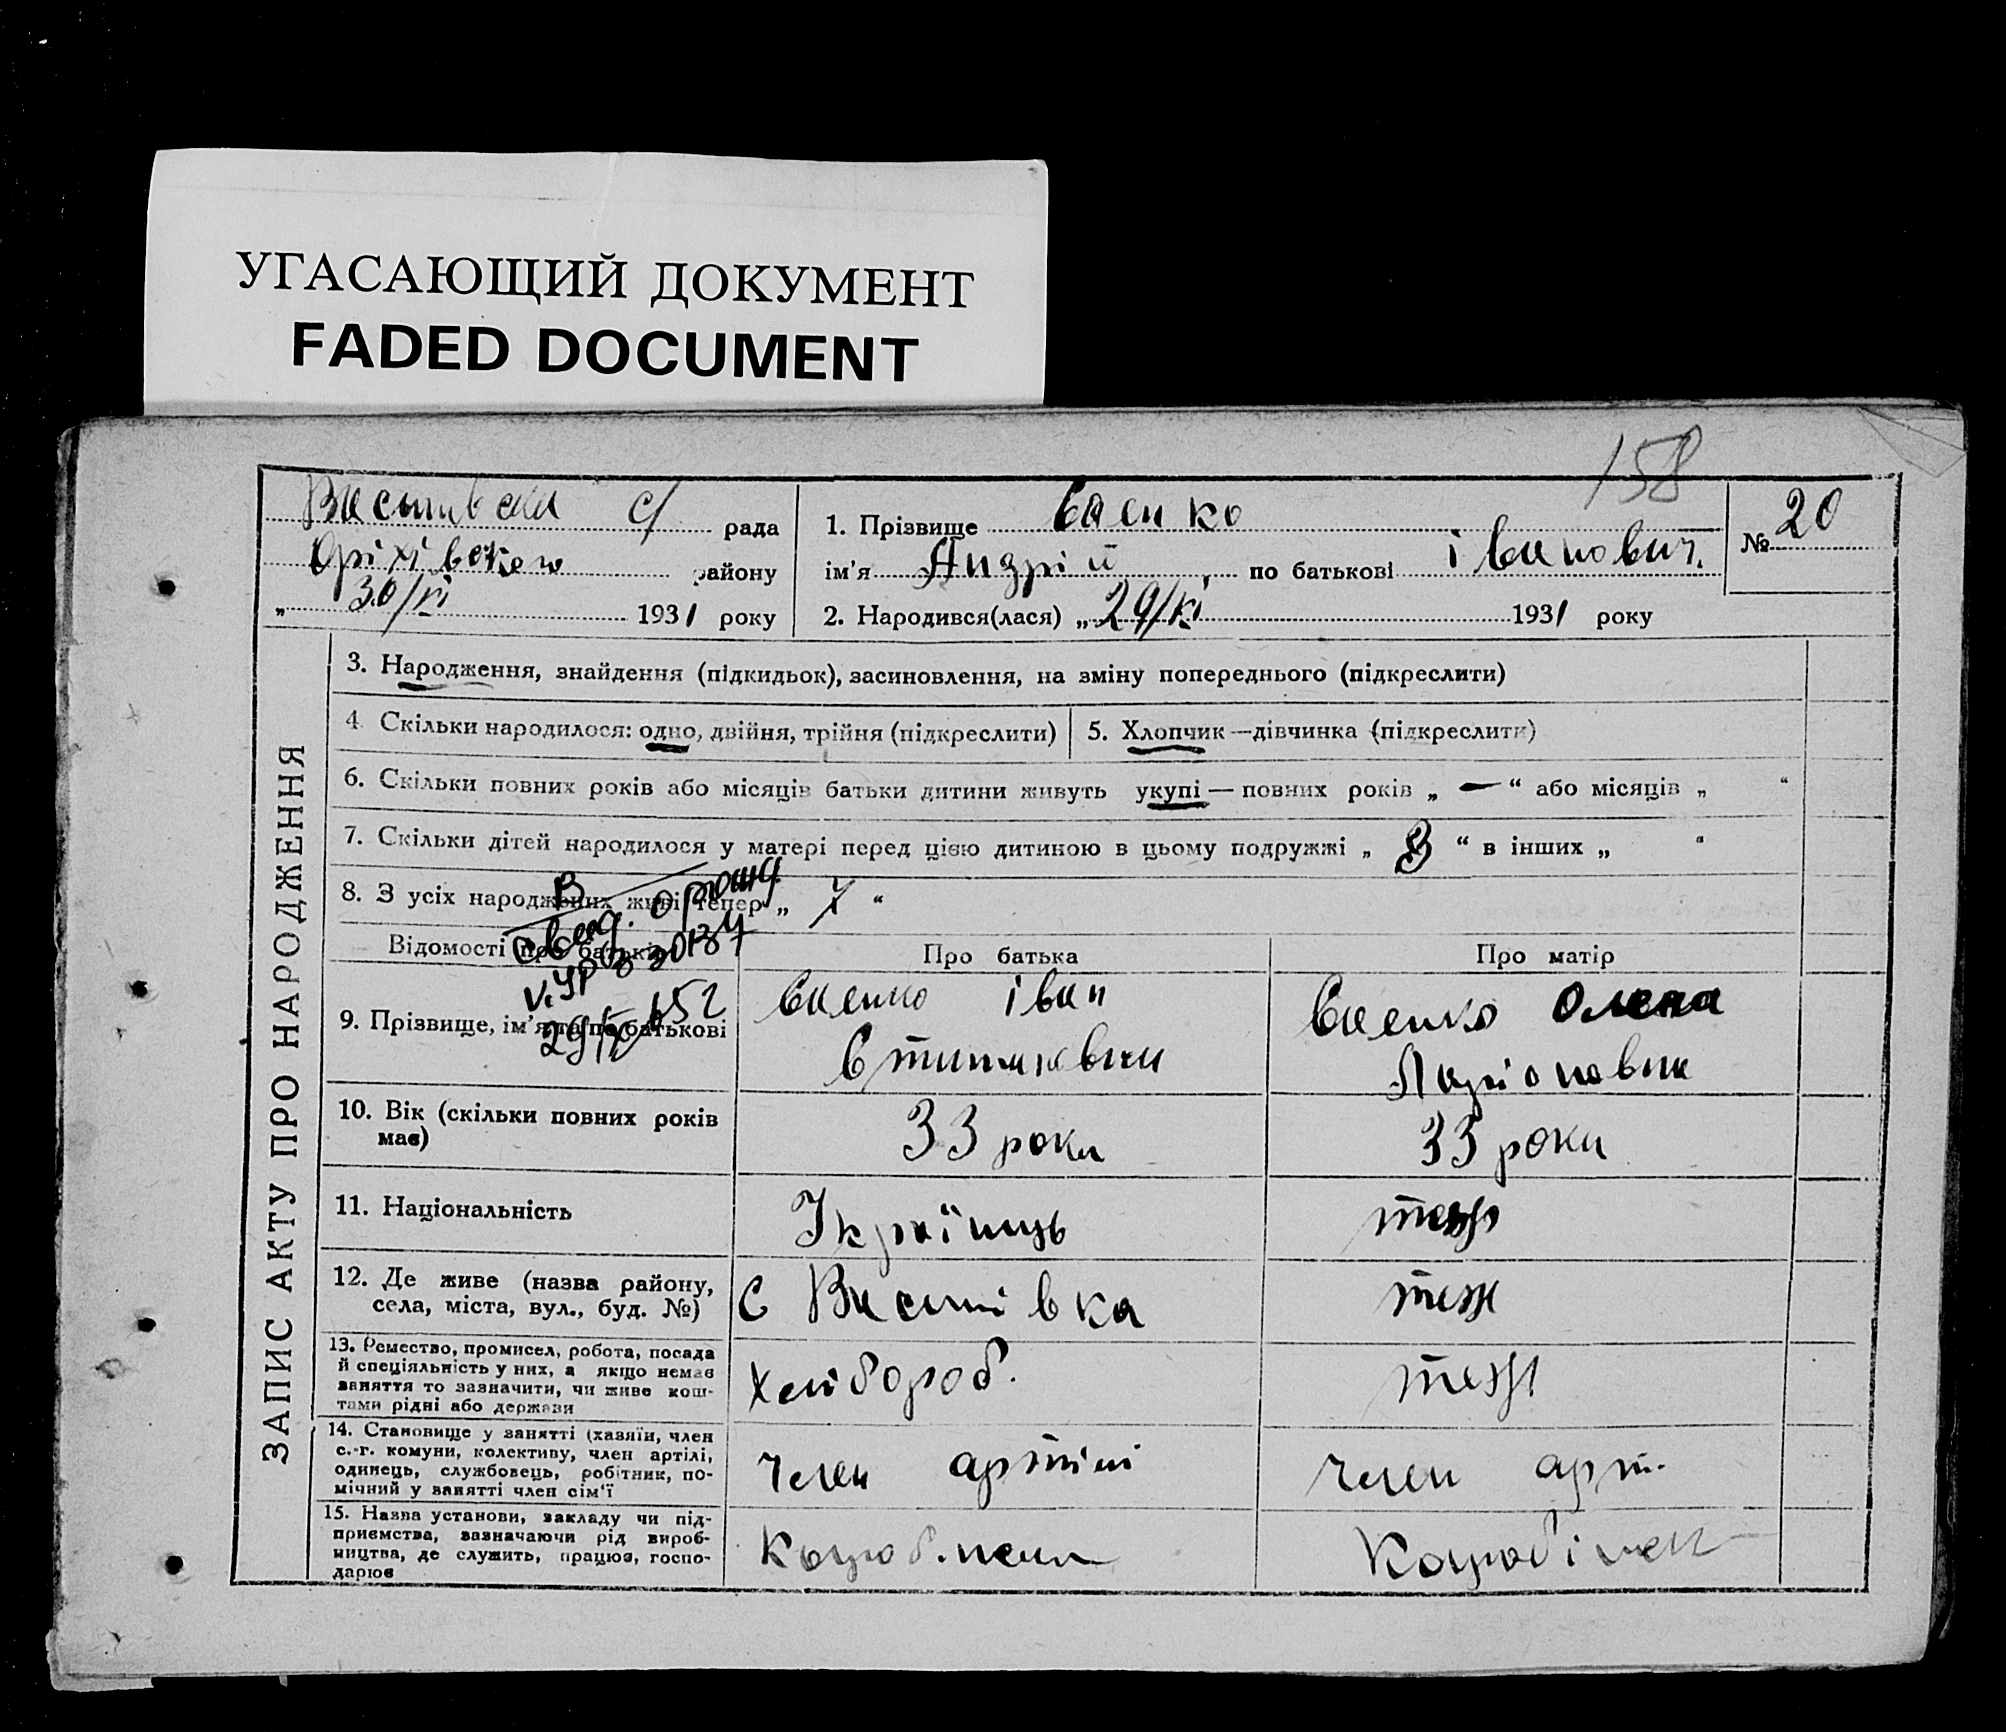 УГАСАЮЩИЙ ДОКУМЕНТ
FADED DOCUMENT
158
с/ рада
Оріхівского району
„ 30/XI 1931 року
1. Прізвище Ваєнко
ім'я Андрій по батькові Іванович.
2. Народився(лася) „ 29/XI 1931 року
№ 20
ЗАПИС АКТУ ПРО НАРОДЖЕННЯ
3. Народження, знайдення (підкидьок), засиновлення, на зміну попереднього (підкреслити)
4 Скільки народилося: одно, двійня, трійня (підкреслити)
5. Хлопчик—дівчинка (підкреслити)
6. Скільки повних років або місяців батьки дитини живуть укупі — повних років „ — “ або місяців „ “
7. Скільки дітей народилося у матері перед цією дитиною в цьому подружжі „ “ в інших „ “
8. З усіх народжених живі тепер „ “
Відомості про батьків
Про батька
Про матір
9. Прізвище, ім'я та по батькові
Ваенко Іван
Ваенко Олена
10. Вік (скільки повних років
має)
33 роки
33 роки
11. Національність
Українць
теж
12. Де живе (назва району,
села, міста, вул., буд. №)
с Васинівка
теж
13. Ремество, промисел, робота, посада
й спеціяльність у них, а якщо немає
заняття то зазначити, чи живе кош-
тами рідні або держави
Хліббороб.
теж
14. Становище у занятті (хазяїн, член
с.-г. комуни, колективу, член артілі,
одинець, службовець, робітник, по-
мічний у занятті член сім'ї
член артілі
член арт.
15. Назва установи, закладу чи під-
приємства, зазначаючи рід вироб-
ництва, де служить, працює, госпо-
дарює